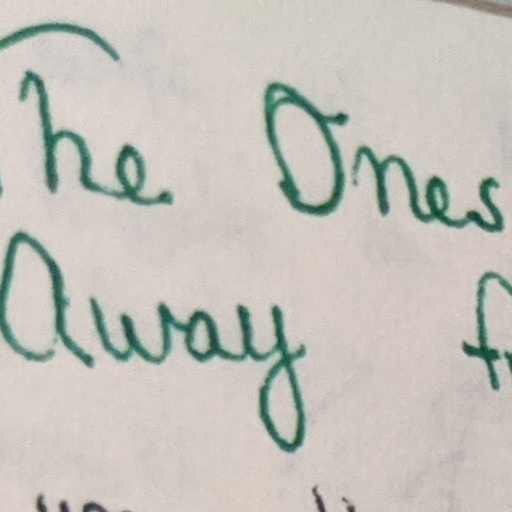 The Ones
Away